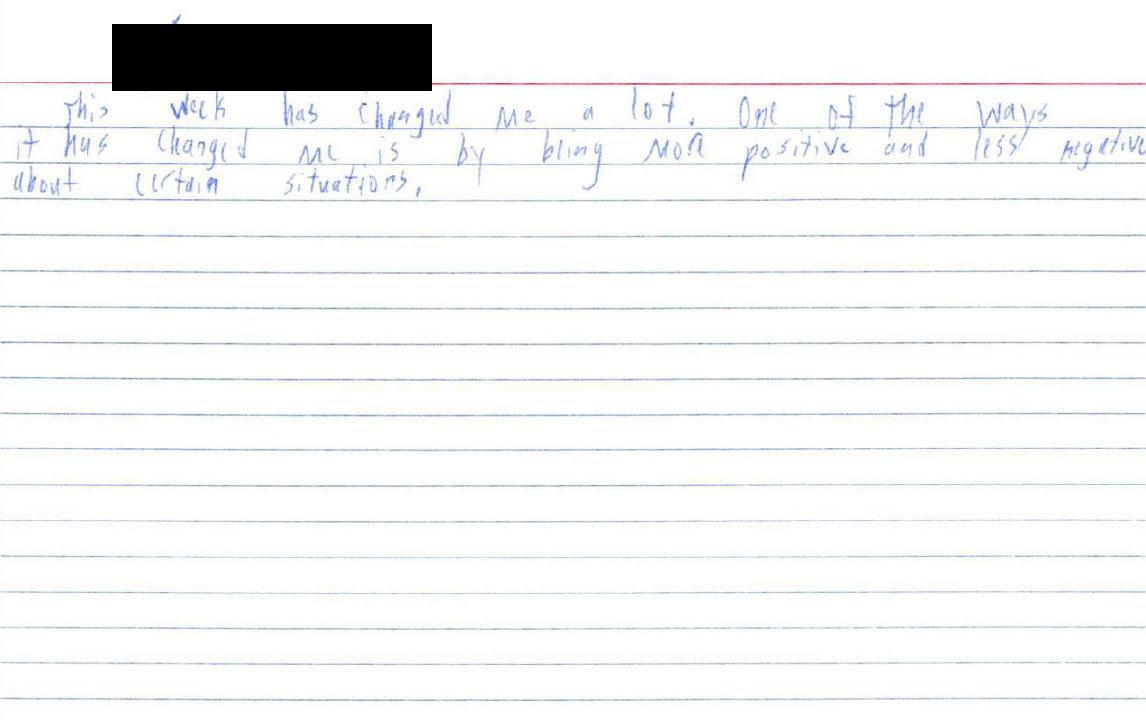 This week has changed me a lot. One of the ways
it has changed me is by being more positive and less negative
about certain situations.